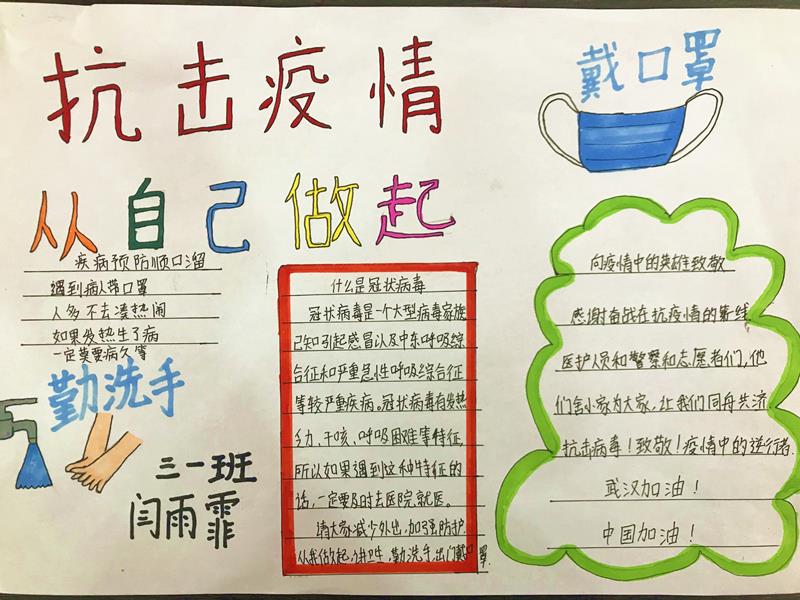 抗击疫情
戴口罩
从自己做起
疾病预防顺口溜
遇到病人带口罩
人多不去凑热闹
如果发热生了病
一定莫要病久等
勤洗手
三一班
闫雨霏
什么是冠状病毒
冠状病毒是一个大型病毒家族
已知引起感冒以及中东呼吸综
合征和严重急性呼吸综合征
等较严重疾病。冠状病毒有发热
乏力、干咳、呼吸困难等特征,
所以如果遇到这种特征的
话,一定要及时去医院就医。
请大家减少外出,加强防护
从我做起,讲卫生,勤洗手,出门戴口罩
向疫情中的英雄致敬
感谢奋战在抗疫情的第一线
医护人员和警察和志愿者们,他
们舍小家为大家,让我们同舟共济
抗击病毒!致敬!疫情中的逆行者.
武汉加油!
中国加油!